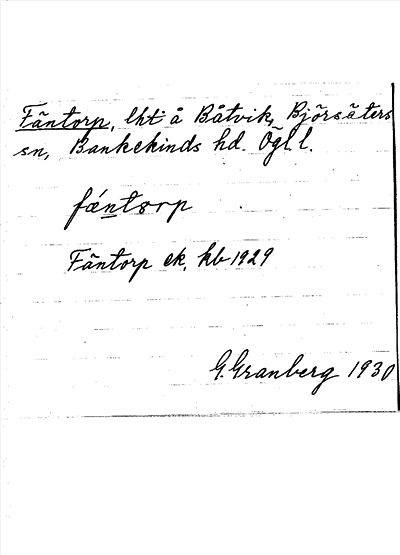 Fäntorp, lht å Båtvik, Björsäters
sn, Bankekinds hd. Ögl. l.
fǽntorp
Fäntorp ek, kb 1929
G. Granberg 1930